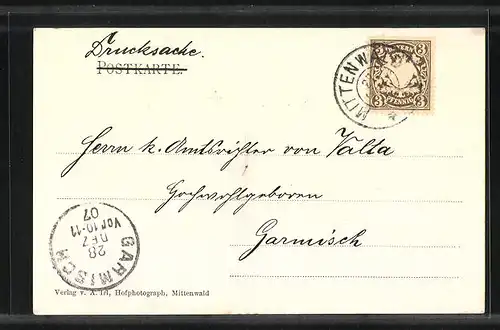 Drucksache.
POSTKARTE.
BAYERN
3 3
3 PFENNIG 3
MITTENW
Herrn k. Amtsrichter von Valta
Hochwohlgeboren
Garmisch
GARMISCH
28
DEZ
Vor 10-11
07
Verlag v. A. Irl, Hofphotograph, Mittenwald